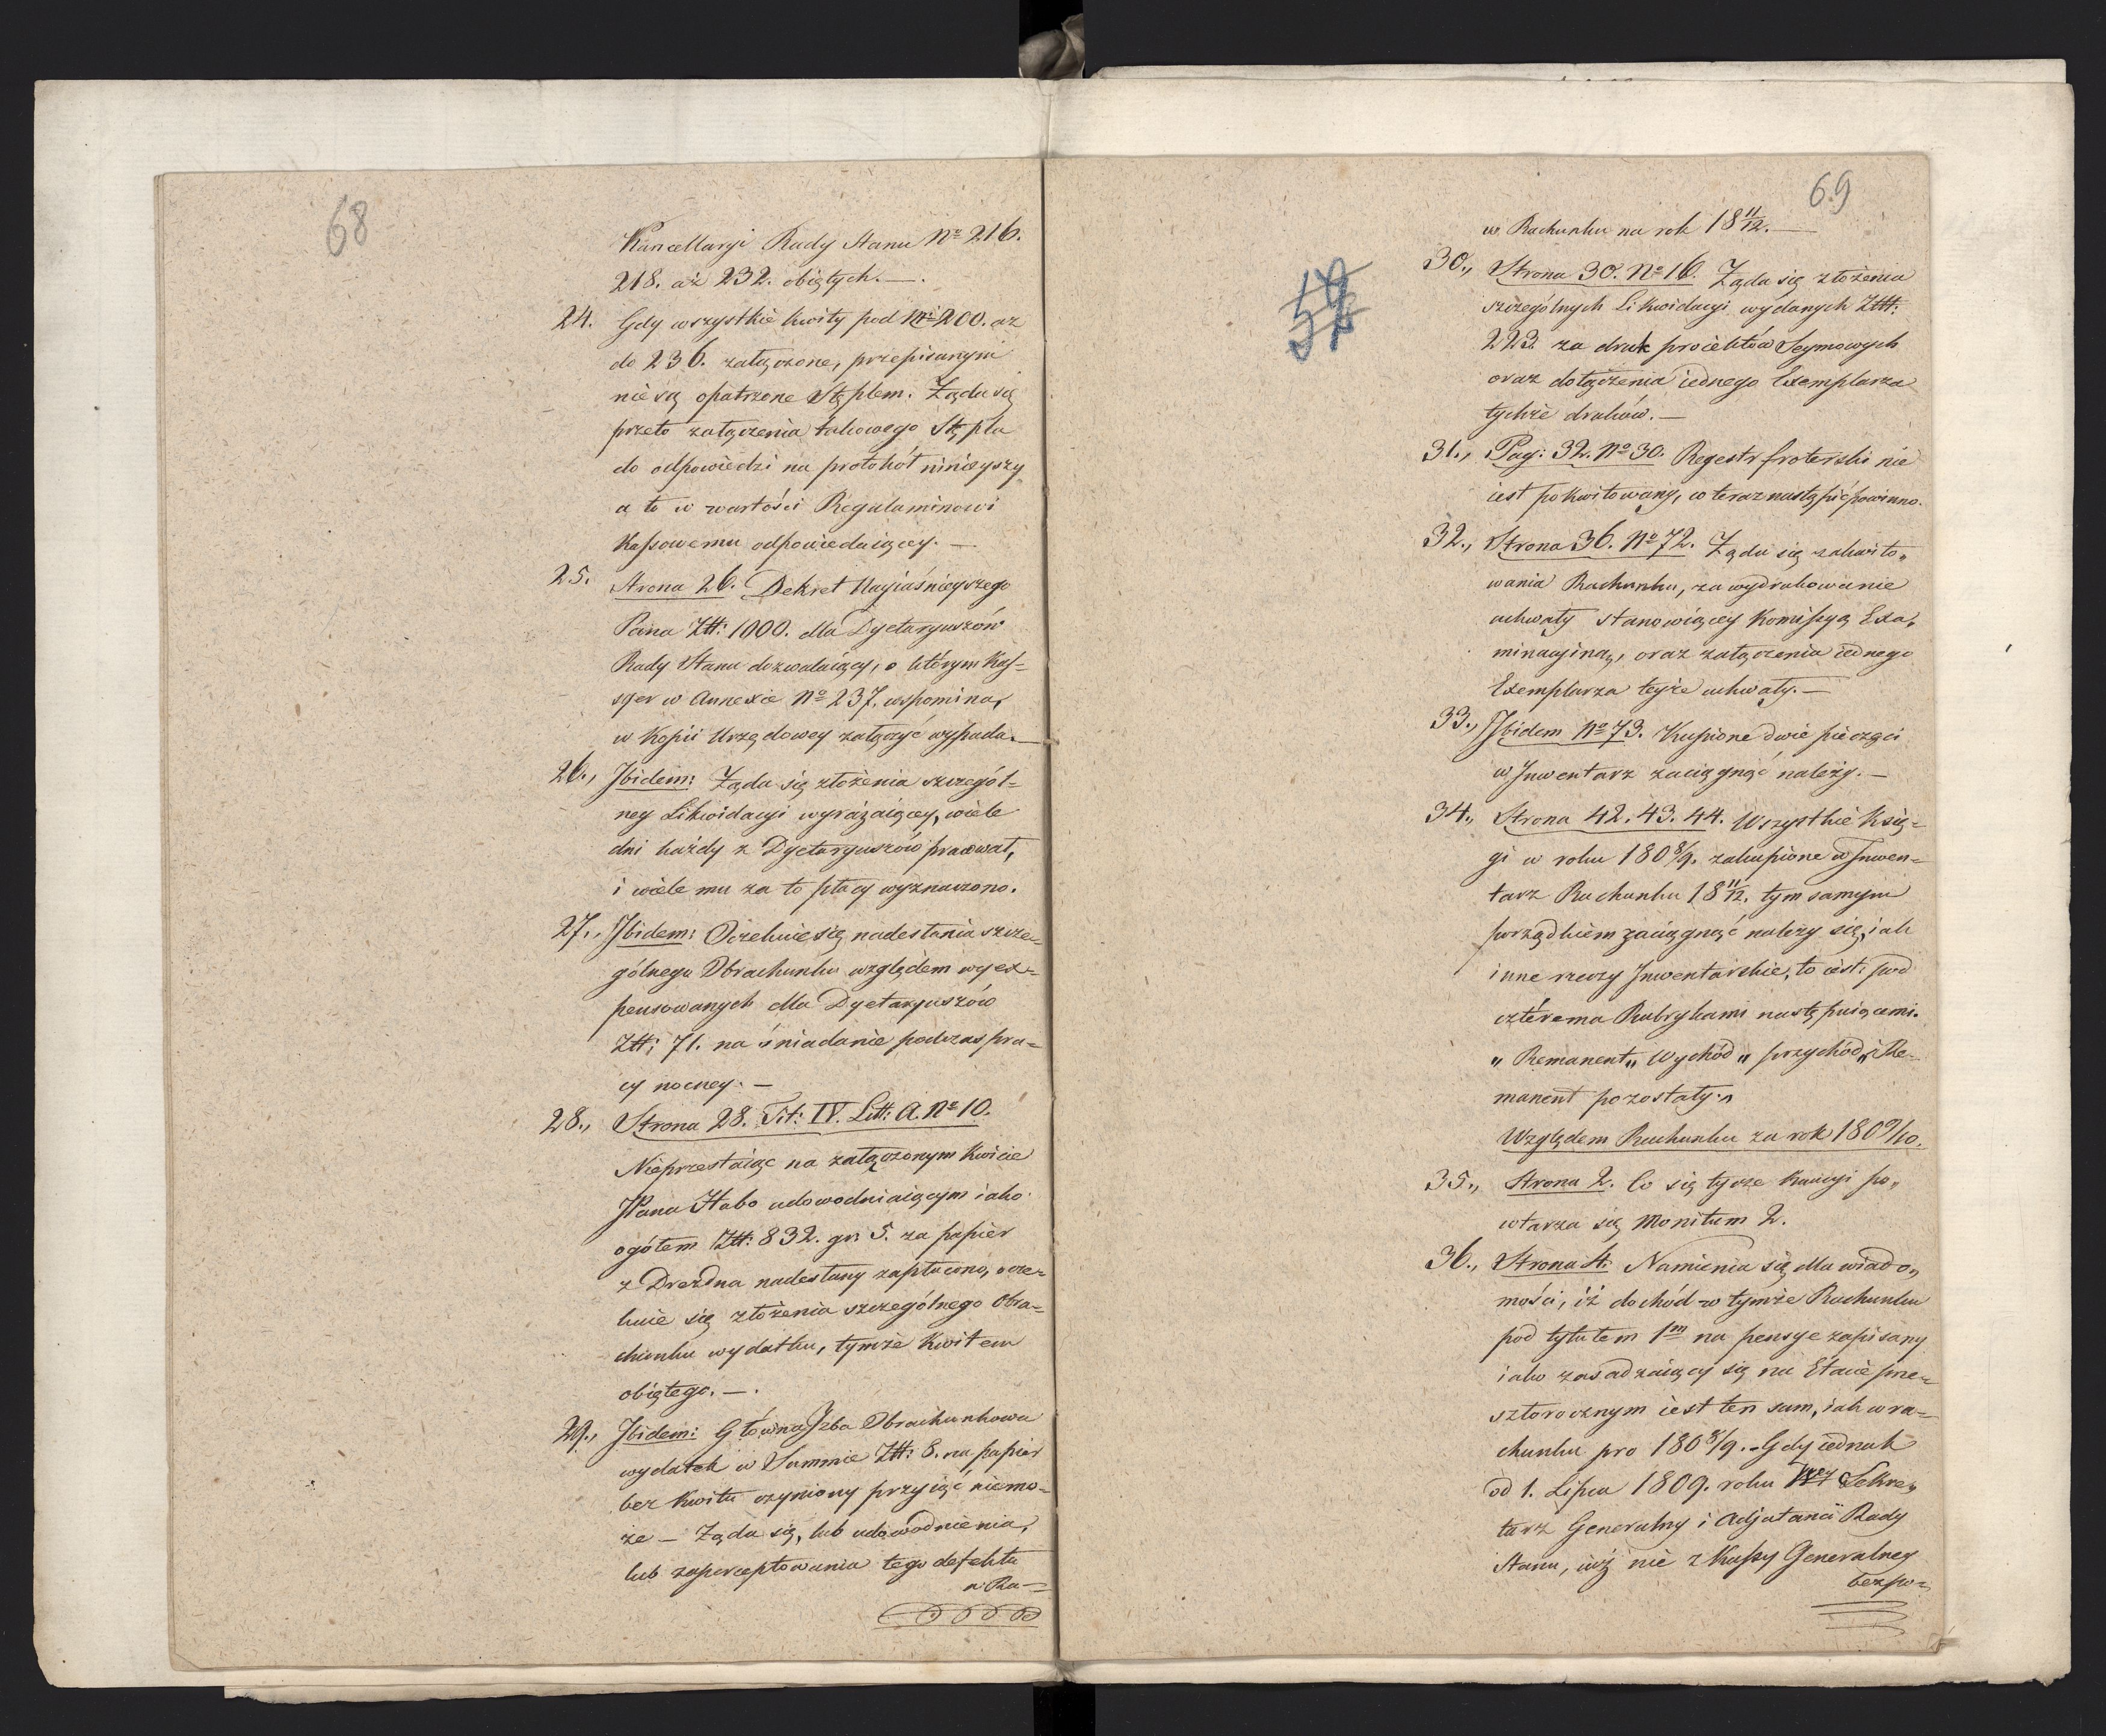 68
Kancellaryi Rady Stanu No 216.
218. aż 232. obiętych. —.
24. Gdy wszystkie kwity pod Nri 200. az
do 236. załączone, przepisanym
nie są opatrzone Stęplem. Żąda się
przeto załączenia takowego Stępla
do odpowiedzi na protokół ninieyszy
a to w wartości Regulaminowi
Kassowemu odpowiedaiącey. —
25. Strona 26. Dekret Nayiaśnieyszego
Pana Złł: 1000. dla Dyetaryuszów
Rady Stanu dozwalaiący, o którym Kas=
syer w Annexie No 237. wspomina,
w Kopii Urzędowey załączyć wypada. —
26., Jbidem: Żąda się złożenia szczegół=
ney Likwidacyi wyrażaiącey, wiele
dni każdy z Dyetaryuszów pracował,
i wiele mu za to płacy wyznaczono.
27., Jbidem: Oczekuie się nadesłania szcze=
gólnego Obrachunku względem wyex=
pensowanych dla Dyetaryuszów
Złł: 71. na śniadanie podczas pra=
cy nocney. —
28., Strona 28. Tit: IV. Litt: A. No 10.
Nieprzestaiąc na załączonym Kwicie
JPana Habo udowodniaiącym iako
ogółem Złł: 832. gr: 5. za papier
z Drezdna nadesłany zapłacono, ocze=
kuie się złożenia szczególnego Obra=
chunku wydatku, tymże Kwitem
obiętego. —.
29., Jbidem: Główna Jzba Obrachunkowa
wydatek w Summie Złł: 8. na papier
bez Kwitu czyniony przyiąć niemo=
że — Żąda się, lub udowodnienia,
lub zaperceptowania tego defektu
w Ra=
69
w Rachunku na rok 18 11/12. —
30., Strona 30. No 16. Żąda się złożenia
szczególnych Likwidacyi wydanych Złł:
223 za druk proiektów Seymowych
oraz dołączenia iednego Exemplarza
tychże druków. —
31., Pag: 32. No 30. Regestr froterski nie
iest pokwitowany, co teraz nastąpić powinno.
32., Strona 36. No 72. Żąda się zakwito„
wania Rachunku, za wydrukowanie
uchwały stanowiącey Komissyą Exa„
minacyiną, oraz załączenia iednego
Exemplarza teyże uchwały. —
33., Jbidem No 73. Kupione dwie pieczęci
w Jnwentarz zaciągnąć należy. —
34., Strona 42. 43. 44. Wszystkie Księ=
gi w roku 180 8/9. zakupione w Jnwen=
tarz Rachunku 18 11/12. tym samym
porządkiem zaciągnąć należy się, iak
inne rzeczy Jnwentarskie, to iest: pod
cztérema Rubrykami następuiącemi.
„ Remanent „ Wychód „ przychód „ i Re=
manent pozostały.„
Względem Rachunku za rok 180 9/10.
35., Strona 2. Co się tycze Kaucyi po„
wtarza się Monitum 2.
36., Strona 4. Namienia się dla wiado„
mości, iż dochód w tymże Rachunku
pod tytułem 1m na pensye zapisany
iako zasadzaiący się na Etacie prze=
szłorocznym iest ten sam, iak w ra=
chunku pro 180 8/9. - Gdy iednak
od 1. Lipca 1809. roku Sekre„
tarz Generalny i Adjutanci Rady
Stanu, iuż nie z Kassy Generalney
bezpo=